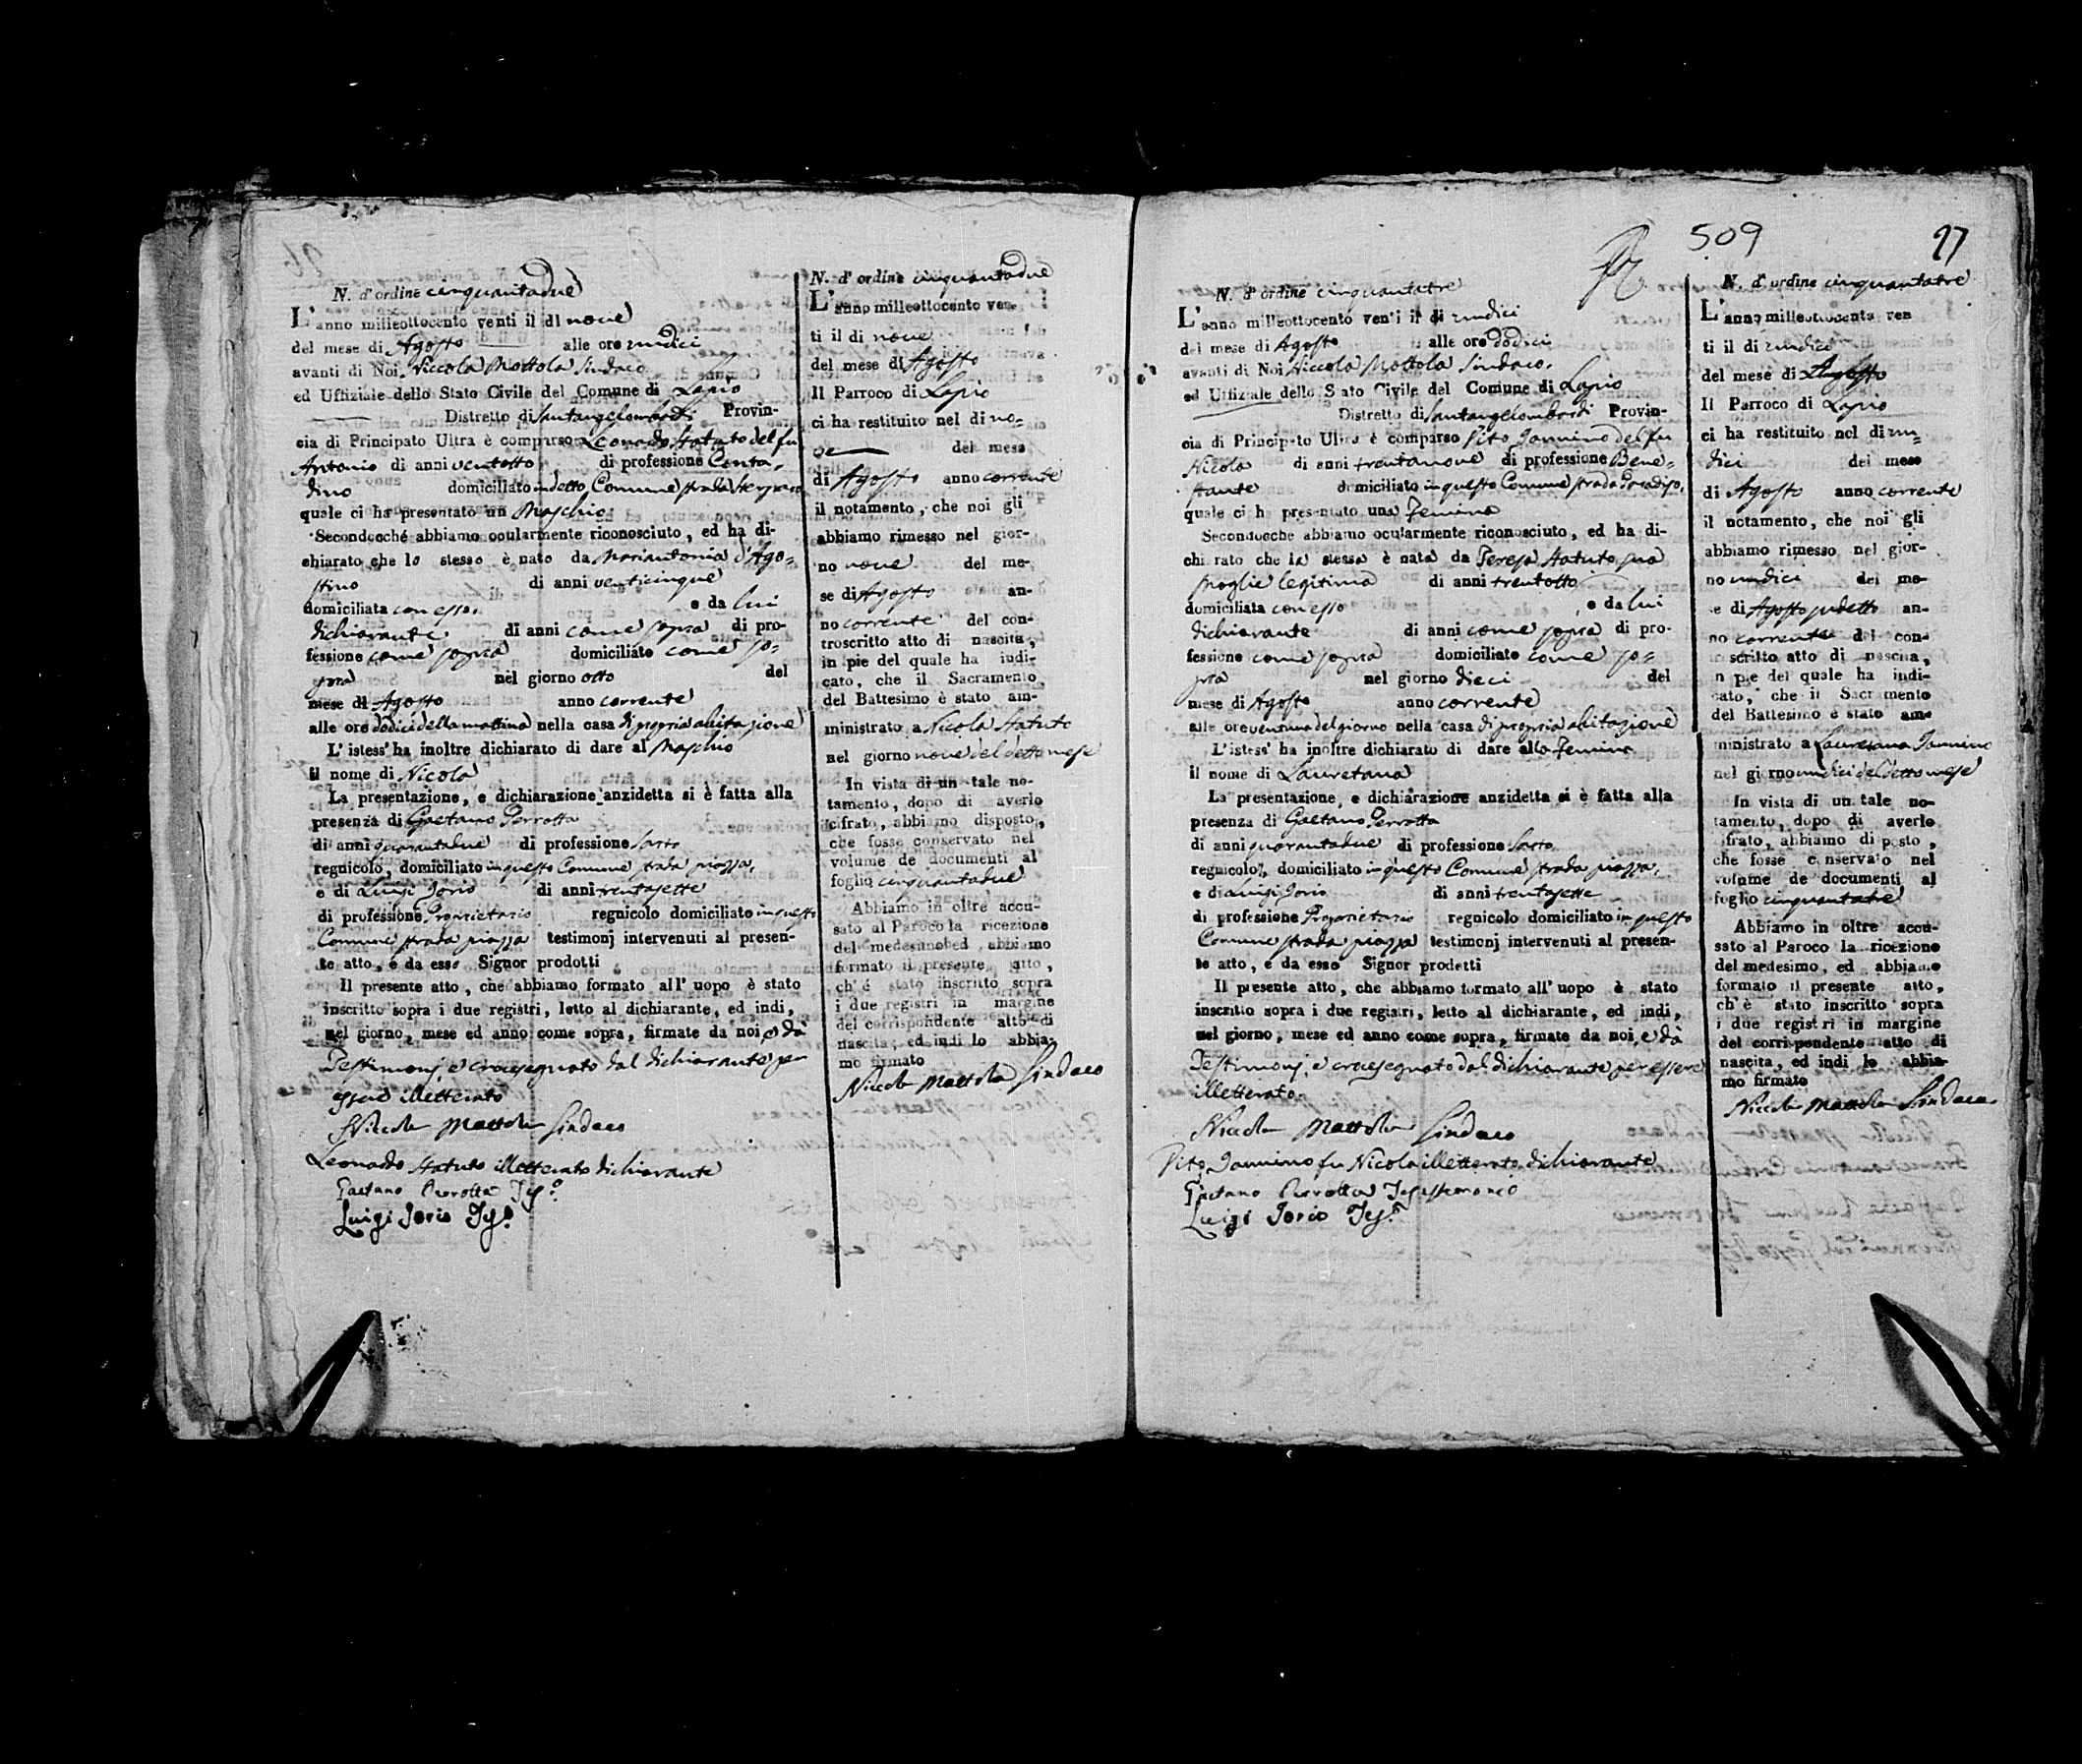 N. d'ordine cinquantadue
L'anno milleottocento venti il di nove
del mese di Agosto alle ore undici
avanti di Noi Niccola Mottola Sindaco
ed Uffiziale dello Stato Civile del Comune di Lapio
Distretto di Santangelolombardi Provin-
cia di Principato Ultra è comparso Leonardo Statuto del fu
Antonio di anni ventotto di professione Conta-
dino domiciliato in detto Comune strada
quale ci ha presentato un Maschio
Secondocché abbiamo ocularmente riconosciuto, ed ha di-
chiarato che lo stesso è nato da Mariantonia d'Ago=
stino di anni venticinque
domiciliata con esso, e da lui
dichiarante di anni come sopra di pro-
fessione come sopra domiciliato come so=
pra nel giorno otto del
mese di Agosto anno corrente
alle ore dodici della mattina nella casa di propria abitazione
L'istess' ha inoltre dichiarato di dare al Maschio
il nome di Nicola
La presentazione, e dichiarazione anzidetta si è fatta alla
presenza di Gaetano Perrotta
di anni quarantadue di professione Sarto
regnicolo, domiciliato in questo Comune strada piazza,
e di Luigi Jorio di anni trentasette
di professione Proprietario regnicolo domiciliato in questo
Comune strada piazza testimonj intervenuti al presen-
te atto, e da esso Signor prodotti
Il presente atto, che abbiamo formato all' uopo è stato
inscritto sopra i due registri, letto al dichiarante, ed indi,
nel giorno, mese ed anno come sopra, firmate da noi e dà
Testimonj, e crocesegnato dal dichiarante per
essere illetterato
Niccola Mottola Sindaco
Leonardo Statuto illetterato dichiarante
Gaetano Perrotta Tes.o
Luigi Jorio Tes.o
N. d' ordine cinquantadue
L'anno milleottocento ven-
ti il di nove
del mese di Agosto
Il Parroco di Lapio
ci ha restituito nel di no=
ve del mese
di Agosto anno corrente
il notamento, che noi gli
abbiamo rimesso nel gior-
no nove del me-
se di Agosto an-
no corrente del con-
troscritto atto di nascita,
in pie del quale ha indi-
cato, che il Sacramento
del Battesimo è stato am-
ministrato a Nicola Statuto
nel giorno nove del detto mese
In vista di un tale no-
tamento, dopo di averlo
cifrato, abbiamo disposto,
che fosse conservato nel
volume de documenti al
foglio cinquantadue
Abbiamo in oltre accu-
sato al Paroco la ricezione
del medesimo ed abbiamo
formato il presente atto,
ch' é stato inscritto sopra
i due registri in margine
del corrispondente atto di
nascita, ed indi lo abbia-
mo firmato
Niccola Mottola Sindaco
509
27
N. d' ordine cinquantatre
L'anno milleottocento venti il di undici
del mese di Agosto alle ore dodici
avanti di Noi Niccola Mottola Sindaco,
ed Uffiziale dello Stato Civile del Comune di Lapio
Distretto di Santangelolombardi Provin-
cia di Principato Ultra è comparso Vito Jannino del fu
Nicola di anni trentanove di professione Bene=
stante domiciliato in questo Comune strada Paradiso,
quale ci ha presentato una Femina
Secondocche abbiamo ocularmente riconosciuto, ed ha di-
chirato che la stessa è nata da Teresa Statuto sua
moglie legitima di anni trentotto
domiciliata con esso, e da lui
dichiarante di anni come sopra di pro-
fessione come sopra domiciliato come so=
pra nel giorno dieci del
mese di Agosto anno corrente
alle ore ventuna del giorno nella casa di propria abitazione
L'istess' ha inoltre dichiarato di dare alla Femina
il nome di Lauretana
La presentazione, e dichiarazione anzidetta si è fatta alla
presenza di Gaetano Perrotta
di anni quarantadue di professione Sarto
regnicolo, domiciliato in questo Comune strada piazza,
e di Luigi Jorio di anni trentasette
di professione Proprietario regnicolo domiciliato in questo
Comune strada piazza testimonj intervenuti al presen-
te atto, e da esso Signor prodotti
Il presente atto, che abbiamo formato all' uopo è stato
inscritto sopra i due registri, letto al dichiarante, ed indi,
nel giorno, mese ed anno come sopra, firmate da noi, e dà
Testimonj, e crocesegnato dal dichiarante per essere
illetterato.
Niccola Mottola Sindaco
Vito Jannino fu Nicola illetterato dichiarante
Gaetano Perrotta Testimonio
Luigi Jorio Tes.o
N. d' ordine cinquantatre
L'anno milleottocento ven
ti il di undici
del mese di Agosto
Il Parroco di Lapio
ci ha restituito nel di un=
dici del mese
di Agosto anno corrente
il notamento, che noi gli
abbiamo rimesso nel gior-
no undici del me-
se di Agosto sudetto an-
no corrente del con-
troscritto atto di nascita,
in pie del quale ha indi-
cato, che il Sacramento
del Battesimo è stato am-
ministrato a Lauretana Jannino
nel giorno undici del detto mese
In vista di un tale no-
tamento, dopo di averlo
cifrato, abbiamo disposto,
che fosse conservato nel
volume de documenti al
foglio cinquantatre
Abbiamo in oltre accu-
sato al Paroco la ricezione
del medesimo, ed abbiamo
formato il presente atto,
ch'è stato inscritto sopra
i due registri in margine
del corrispondente atto di
nascita, ed indi lo abbia-
mo firmato
Niccola Mottola Sindaco